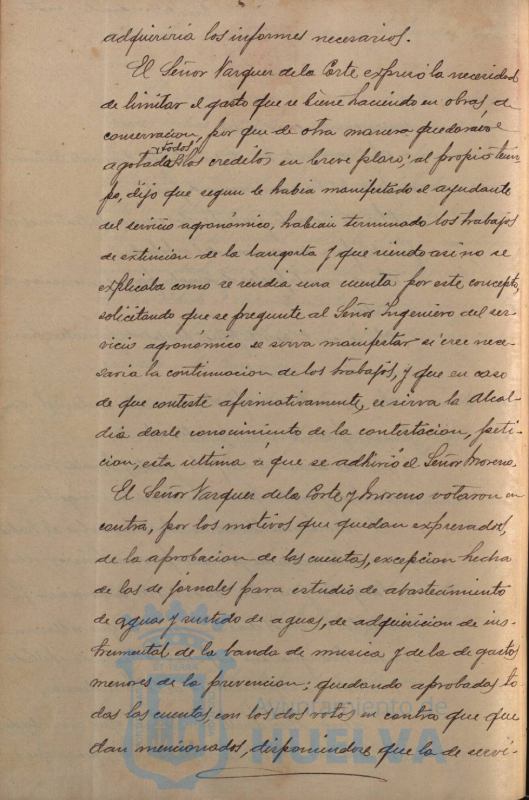 adquiriria los informes necesarios.
El Señor Vazquez de la Corte expresó la necesidad
de limitar el gasto que se biene haciendo en obras, de
conservacion, por que de otra manera quedarian
todos
agotados los creditos en breve plazo; al propio tiem-
po, dijo que segun le habia manifestado el ayudante
del servicio agronómico, habian terminado los trabajos
de extincion de la langosta y que siendo asi no se
explicaba como se rendia una cuenta por este concepto,
solicitando que se pregunte al Señor Ingeniero del ser-
vicio agronómico se sirva manifestar si cree nece-
saria la continuacion de los trabajos, y que en caso
de que conteste afirmativamente, se sirva la Alcal-
dia darle conocimiento de la contestacion, peti-
cion, esta ultima á que se adhirió el Señor Moreno.
El Señor Vazquez de la Corte y Moreno votaron en
contra, por los motivos que quedan expresados,
de la aprobacion de las cuentas, excepcion hecha
de las de jornales para estudio de abastecimiento
de aguas y surtido de aguas, de adquisicion de ins-
trumental de la banda de musica y de la de gastos
menores de la prevencion; quedando aprobadas to
das las cuentas con los dos votos en contra que que
dan mencionados, disponiendose que la de servi-
Ayuntamiento de
HUELVA